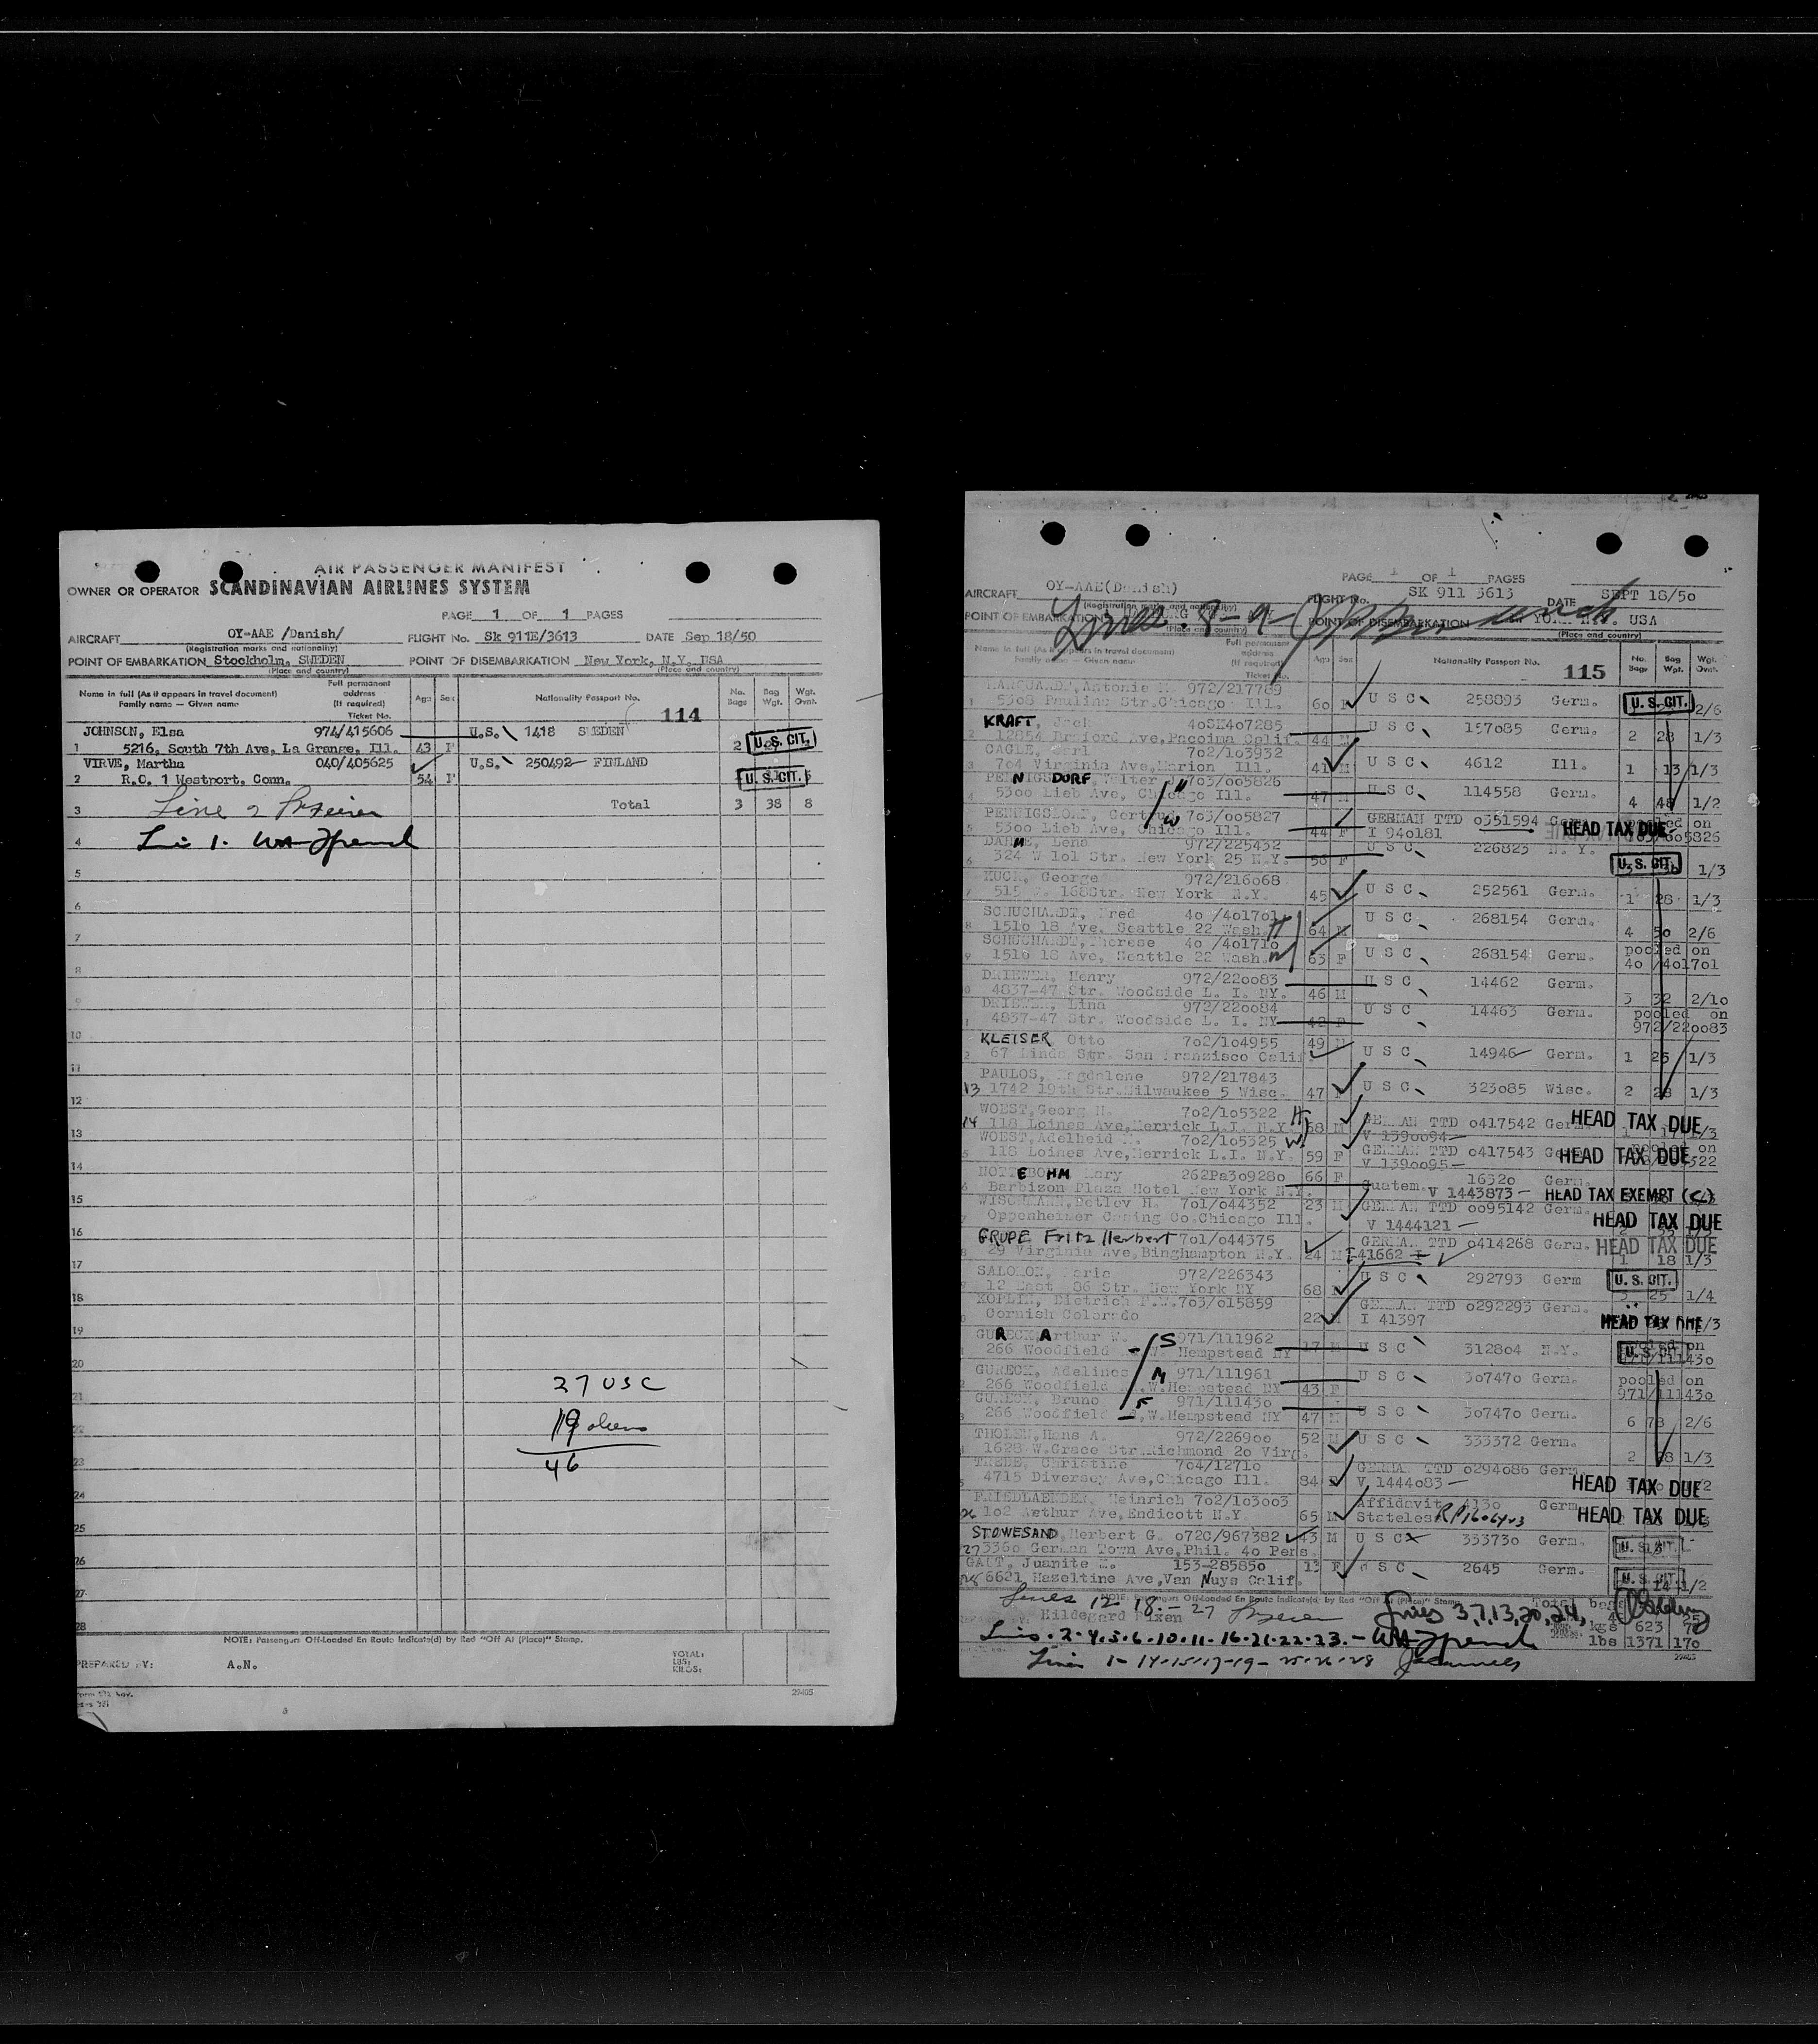 AIR PASSENGER MANIFEST
OWNER OR OPERATOR SCANDINAVIAN AIRLINES SYSTEM
PAGE 1 OF 1 PAGES
AIRCRAFT OY-AAE /Danish/ FLIGHT No. Sk 911E/3613 DATE Sep 18/50
(Registration marks and nationality)
POINT OF EMBARKATION Stockholm, SWEDEN POINT OF DISEMBARKATION New York, N.Y. USA
(Place and country) (Place and country)
Name in full (As it appears in travel document) Family name — Given name Full permanent address (If required) Ticket No. Age Sex Nationality Passport No. 114 No. Bags Bag Wgt. Wgt. Ovnt.
JOHNSON, Elsa 974/415606 U.S. 1418 SWEDEN
1 5216, South 7th Ave, La Grange, Ill. 43 F 2 U.S. CIT.
VIRVE, Martha 040/405625 U.S. 250492 FINLAND
2 R.C. 1 Westport, Conn. 54 F U.S. CIT.
3 Line 2 Total 3 38 8
4
5
6
7
8
9
10
11
12
13
14
15
16
17
18
19
20
21
22
23
24
25
26
27
28
27 USC
19 aliens
46
NOTE: Passengers Off-Loaded En Route Indicate(d) by Red "Off At (Place)" Stamp.
PREPARED BY: A.N. TOTAL: LBS: KILOS:
29405
PAGE 1 OF 1 PAGES
AIRCRAFT OY-AAE(Danish) FLIGHT No. SK 911 3613 DATE SEPT 18/50
(Registration marks and nationality)
POINT OF EMBARKATION POINT OF DISEMBARKATION USA
Lines 8-9-
(Place and country) (Place and country)
Name in full (As it appears in travel document) Family name — Given name Full permanent address (If required) Ticket No. Age Sex Nationality Passport No. 115 No. Bags Bag Wgt. Wgt. Ovnt.
972/217789
1 5308 Paulina Str.Chicago Ill. 60 F U S C 258893 Germ. U.S. CIT. 2/6
KRAFT, Jack 40SK407285
2 Pacoima Calif. 44 M U S C 157085 Germ. 2 28 1/3
CAGLE, Carl 702/103932
3 704 Virginia Ave,Marion Ill. 41 M U S C 4612 Ill. 1 13 1/3
PENNIGSDORF, Walter 703/005826
4 5300 Lieb Ave, Chicago Ill. 47 M U S C 114558 Germ. 4 48 1/2
PENNIGSDORF, Gertrud 703/005827 GERMAN TTD 0351594 Germ. pooled on
5 5300 Lieb Ave, Chicago Ill. 44 F I 940181 HEAD TAX DUE 703/005826
Lena 972/225432 U S C 226823 N.Y.
6 324 W 101 Str. New York 25 N.Y. 58 F U.S. CIT. 1/3
KUCK, George 972/216068
7 515 168Str. New York N.Y. 45 U S C 252561 Germ. 1 28 1/3
SCHUCHARDT, Fred 40 /401701 H
8 1510 18 Ave. Seattle 22 Wash. 64 M U S C 268154 Germ. 4 50 2/6
SCHUCHARDT, Therese 40 /401710 W pooled on
9 1510 18 Ave, Seattle 22 Wash. 63 F U S C 268154 Germ. 40 /401701
DRIEWER, Henry 972/220083
4837-47 Str. Woodside L. I. NY. 46 M U S C 14462 Germ. 3 32 2/10
DRIEWER, Lina 972/220084 pooled on
4837-47 Str. Woodside L. I. NY 42 F U S C 14463 Germ. 972/220083
KLEISER Otto 702/104955 49 M
67 Linda Str. San Fransisco Calif. U S C 14946 Germ. 1 25 1/3
PAULOS, Magdalene 972/217843
13 1742 19th Str.Milwaukee 5 Wisc. 47 F U S C 323085 Wisc. 2 28 1/3
WOEST,Georg H. 702/105322 H
14 118 Loines Ave,Merrick L.I. N.Y. 68 M GERMAN TTD 0417542 Germ. V 1390094 HEAD TAX DUE 1/3
WOEST,Adelheid M. 702/105325 W
118 Loines Ave,Merrick L.I. N.Y. 59 F GERMAN TTD 0417543 Germ. V 1390095 HEAD TAX DUE
NOTTEBOHM Mary 262Pa309280 66 F 16320 Germ.
Barbizon Plaza Hotel New York N.Y. Guatem. V 1443873 HEAD TAX EXEMPT (C)
Detlev H. 701/044352 23 M GERMAN TTD 0095142 Germ.
Oppenheimer Casing Co.Chicago Ill. V 1444121 HEAD TAX DUE
GRUPE Fritz Herbert 701/044375 GERMAN TTD 0414268 Germ.
29 Virginia Ave,Binghampton N.Y. 24 M I 41662 HEAD TAX DUE 1 18 1/3
SALOMON, Marie 972/226343
12 East 86 Str. New York NY 68 F U S C 292793 Germ U.S. CIT. 25 1/4
KOPLIN, Dietrich 703/015859 GERMAN TTD 0292293 Germ.
Cornish Colorado 22 M I 41397 HEAD TAX DUE 1/3
Arthur W. 971/111962 S
266 Woodfield W. Hempstead NY 17 M U S C 312804 N.Y. U.S. CIT.
GURECK, Adeline 971/111961 M pooled on
266 Woodfield W.Hempstead NY 43 F U S C 307470 Germ. 971/111430
GURECK, Bruno 971/111430 F
266 Woodfield W.Hempstead NY 47 M U S C 307470 Germ. 6 78 2/6
THOLEN,Hans A. 972/226900 52 M U S C 333372 Germ.
1628 W.Grace Str.Richmond 20 Virg. 2 28 1/3
Christine 704/12710 GERMAN TTD 0294086 Germ.
4715 Diversey Ave,Chicago Ill. 84 F V 1444083 HEAD TAX DUE
FRIEDLAENDER, Heinrich 702/103003 Affidavit 4130 Germ.
26 102 Arthur Ave,Endicott N.Y. 65 M Stateless HEAD TAX DUE
STOWESAND,Herbert G. 0720/967382 43 M U S C 333730 Germ.
27 3360 German Town Ave,Phil. 40 Pens. U.S. CIT.
GAUT, Juanite M. 153-285850 13 F U S C 2645 Germ.
28 6621 Hazeltine Ave,Van Nuys Calif. U.S. CIT. 14 1/2
NOTE: Passengers Off-Loaded En Route Indicate(d) by Red "Off At (Place)" Stamp. Total bags
Lines 12 18.-27 Lines 3,7,13,20,24,
Hildegard kgs 623
Lines.2.4.5.6.10.11.16.21.22.23.- lbs 1371 170
Lines 1-14-15-17-19-25-26-28
29405